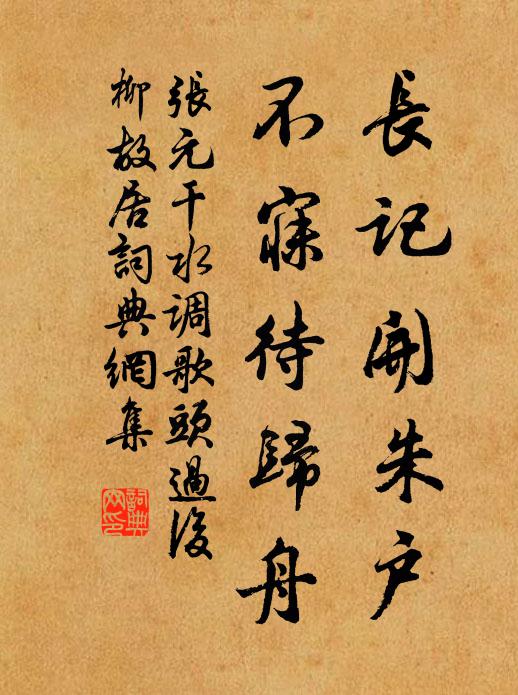 長記開朱戶
不寐待歸舟
張元干水调歌頭過後
柳故居詞典網集
詞典
网印